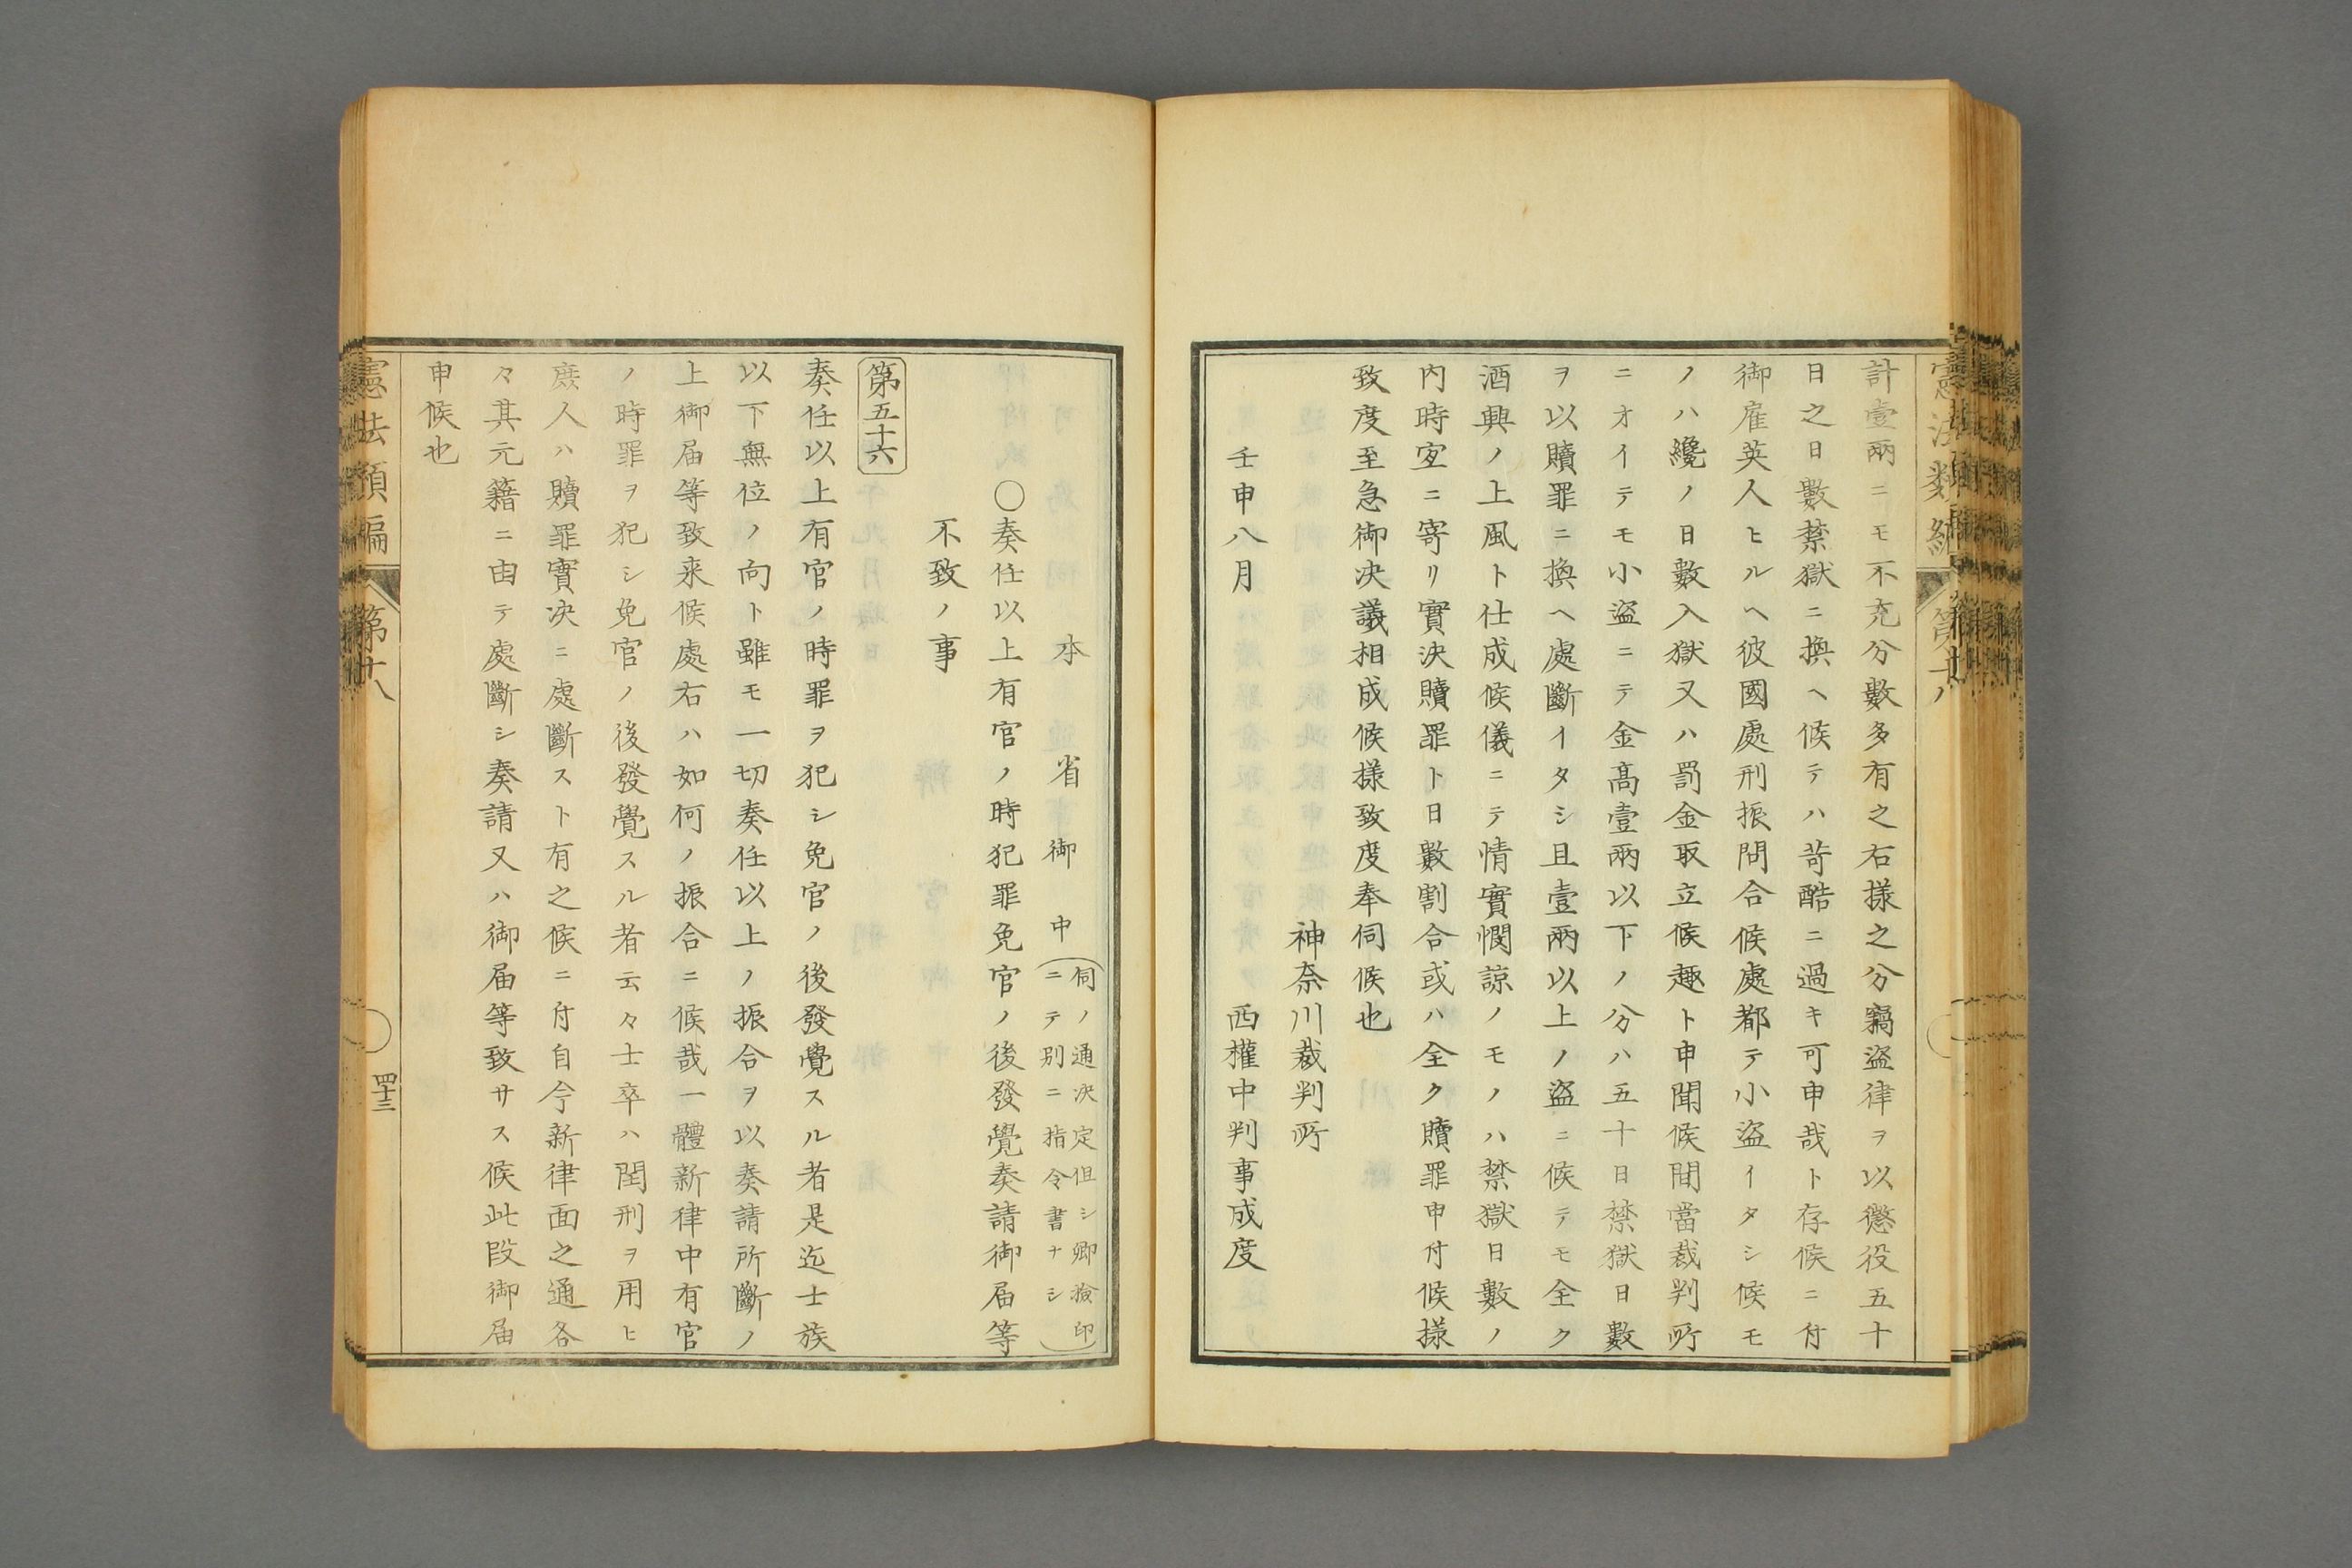 計壹兩ニモ不充分數多有之右樣之分竊盜律ヲ以懲役五十
日之日數禁獄ニ換ヘ候テハ苛酷ニ過キ可申哉ト存候ニ付
御雇英人ヒルヘ彼國處刑振問合候處都テ小盜イタシ候モ
ノハ纔ノ日數入獄又ハ罰金取立候趣ト申聞候間當裁判所
ニオイテモ小盜ニテ金高壹兩以下ノ分ハ五十日禁獄日數
ヲ以贖罪ニ換ヘ處斷イタシ且壹兩以上ノ盜ニ候テモ全ク
酒興ノ上風ト仕成候儀ニテ情實憫諒ノモノハ禁獄日數ノ
内時宜ニ寄リ實決贖罪ト日數割合或ハ全ク贖罪申付候樣
致度至急御决議相成候樣致度奉伺候也
神奈川裁判所
壬申八月　西權中判事成度
本省御中
(伺ノ通决定但シ卿撿印
ニテ別ニ指令書ナシ)
〇奏任以上有官ノ時犯罪免官ノ後發覺奏請御届等
不致ノ事
第五十六
奏任以上有官ノ時罪ヲ犯シ免官ノ後發覺スル者是迄士族
以下無位ノ向ト雖モ一切奏任以上ノ振合ヲ以奏請所斷ノ
上御届等致来候處右ハ如何ノ振合ニ候哉一體新律中有官
ノ時罪ヲ犯シ免官ノ後發覺スル者云々士卒ハ閏刑ヲ用ヒ
庶人ハ贖罪實决ニ處斷スト有之候ニ付自今新律面之通各
々其元籍ニ由テ處斷シ奏請又ハ御届等致サス候此段御届
申候也
憲法類編　第十八
四十三